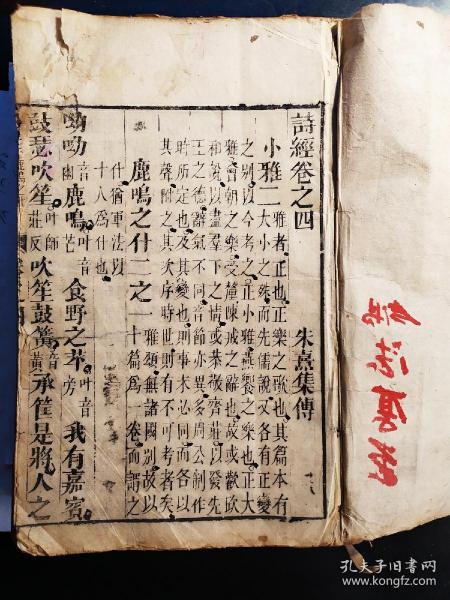 詩經卷之四
朱熹集傳
小雅二
雅者正也正樂之歌也其篇本有
大小之殊而先儒說又各有正變
之別以今考之正小雅燕饗之樂也正大
雅會朝之樂受釐陳戒之辭也故或歡欣
和說以盡羣下之情或恭敬齊莊以發先
王之德辭氣不同音節亦異多周公制作
時所定也及其變也則事未必同而各以
其聲附之其次序時世則有不可考者矣
鹿鳴之什二之一
雅頌無諸國別故以
十篇為一卷而謂之
什猶軍法以
十人為什也
呦呦音幽鹿鳴叶音芒食野之苹叶音旁我有嘉賓
鼓瑟吹笙叶師莊反吹笙鼓簧音黃承筐是將人之
孔夫子旧书网
www.kongfz.com